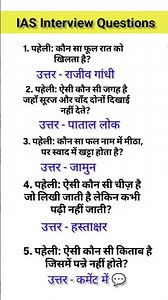 IAS Interview Questions
1. पहेली: कौन सा फूल रात को
खिलता है?
उत्तर - राजीव गांधी
2. पहेली: ऐसी कौन सी जगह है
जहाँ सूरज और चाँद दोनों दिखाई
नहीं देते?
उत्तर - पाताल लोक
3. पहेली: कौन सा फल नाम में मीठा,
पर स्वाद में खट्टा होता है?
उत्तर - जामुन
4. पहेली: ऐसी कौन सी चीज़ है
जो लिखी जाती है लेकिन कभी
पढ़ी नहीं जाती?
उत्तर - हस्ताक्षर
5. पहेली: ऐसी कौन सी किताब है
जिसमें पन्ने नहीं होते?
उत्तर - कमेंट में 💬